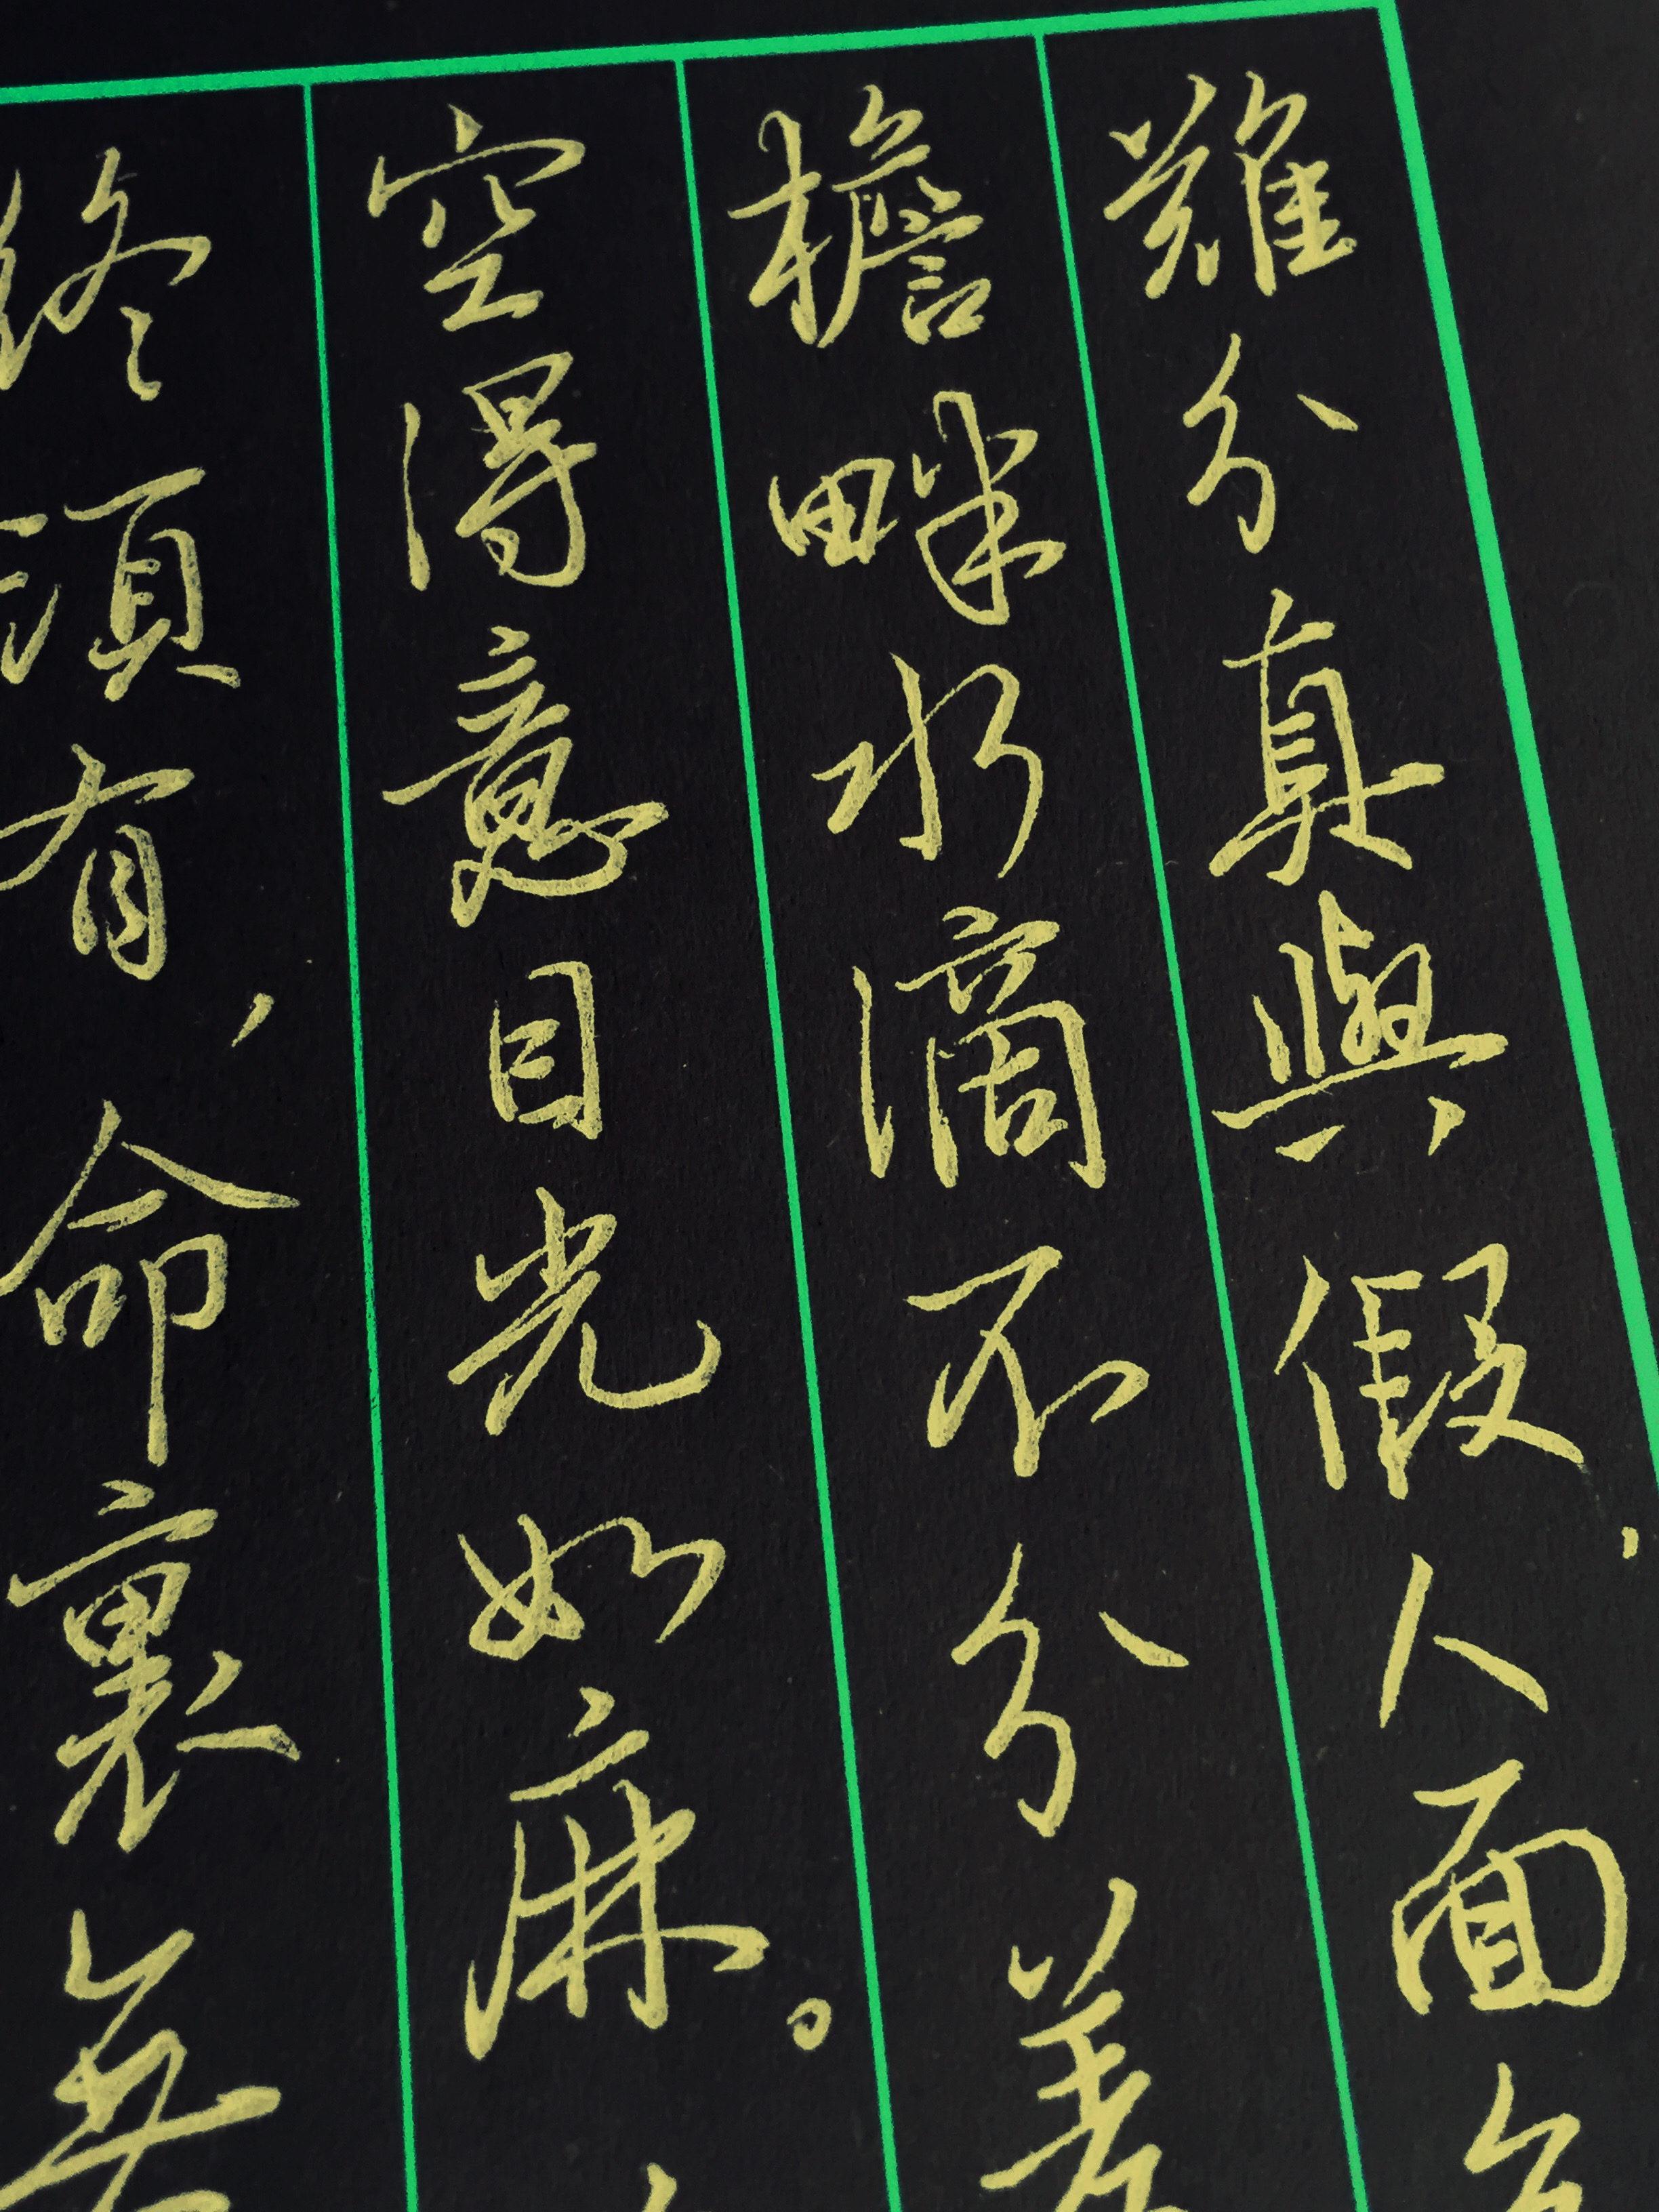 難分真與假，人面
檐畔水滴不分差
空得意目光如麻。
終須有，命裏無